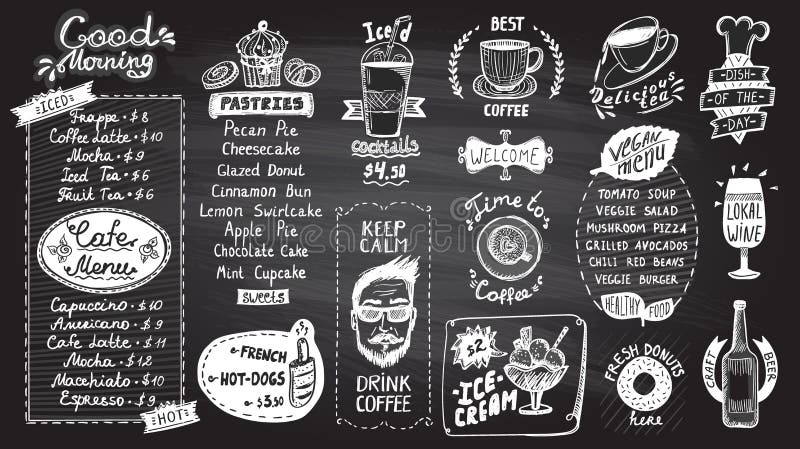 Good
Morning
ICED
Frappe • $ 8
Coffee Latte • $10
Mocha • $ 9
Iced Tea • $ 6
Fruit Tea • $ 6
Cafe
Menu
Cappuccino • $ 10
Americano • $ 9
Cafe Latte • $ 11
Mocha • $12
Macchiato • $ 10
Espresso • $ 9
HOT
PASTRIES
Pecan Pie
Cheesecake
Glazed Donut
Cinnamon Bun
Lemon Swirlcake
Apple Pie
Chocolate Cake
Mint Cupcake
SWEETS
FRENCH
HOT-DOGS
$ 3.50
Iced
Cocktails
$4.50
KEEP
CALM
DRINK
COFFEE
BEST
COFFEE
WELCOME
Time to
Coffee
$2
ICE-
CREAM
Delicious
tea
VEGAN
menu
TOMATO SOUP
VEGGIE SALAD
MUSHROOM PIZZA
GRILLED AVOCADOS
CHILI RED BEANS
VEGGIE BURGER
HEALTHY FOOD
FRESH DONUTS
here
DISH
OF THE
DAY
LOKAL
WINE
CRAFT BEER
dreamstime